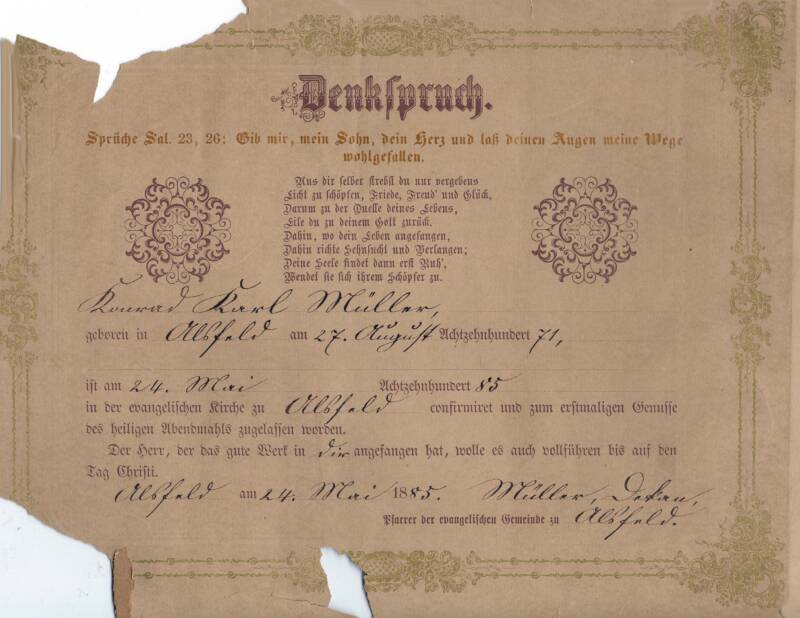 Denkspruch.
Sprüche Sal. 23, 26: Gib mir, mein Sohn, dein Herz und laß deinen Augen meine Wege
wohlgefallen.
Aus dir selber strebst du nur vergebens
Licht zu schöpfen, Friede, Freud' und Glück,
Darum zu der Quelle deines Lebens,
Eile du zu deinem Gott zurück.
Dahin, wo dein Leben angefangen,
Dahin richte Sehnsucht und Verlangen;
Deine Seele findet dann erst Ruh',
Wendet sie sich ihrem Schöpfer zu.
Konrad Karl Müller,
geboren in Alsfeld am 27. August Achtzehnhundert 71,
ist am 24. Mai Achtzehnhundert 85
in der evangelischen Kirche zu Alsfeld confirmiret und zum erstmaligen Genusse
des heiligen Abendmahls zugelassen worden.
Der Herr, der das gute Werk in dir angefangen hat, wolle es auch vollführen bis auf den
Tag Christi.
Alsfeld am 24. Mai 1885. Müller, Dekan,
Pfarrer der evangelischen Gemeinde zu Alsfeld.